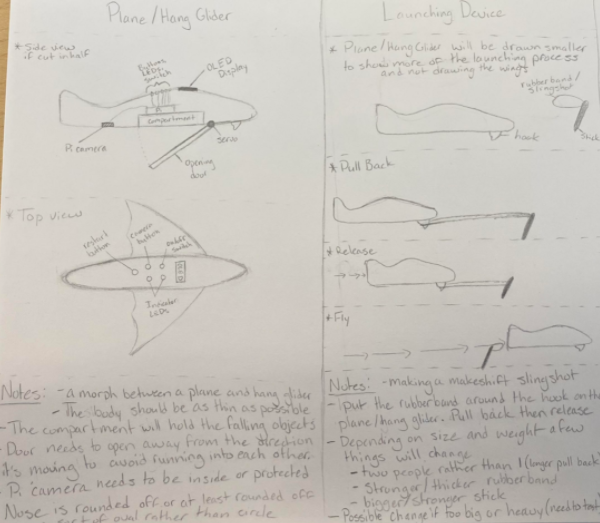 Plane/Hang Glider
* Side view
if cut in half
Buttons
LEDs
switch
OLED
Display
Pi
compartment
Pi camera
servo
opening
door
* Top view
camera
button
Indicator
LEDs
Notes: - a morph between a plane and hang glider
- The body should be as thin as possible
- The compartment will hold the falling objects
- Door needs to open away from the direction
it's moving to avoid running into each other.
- Pi camera needs to be inside or protected
Nose is rounded off or at least rounded off
sort of oval rather than circle
Launching Device
* Plane/Hang Glider will be drawn smaller
to show more of the launching process
and not drawing the wings
rubberband/
slingshot
hook
stick
* Pull Back
* Release
* Fly
Notes: - making a makeshift slingshot
- put the rubberband around the hook on the
plane/hang glider. Pull back then release
- Depending on size and weight a few
things will change
- two people rather than 1 (longer pull back)
- Stronger/thicker rubberband
- bigger/stronger stick
- Possible change if too big or heavy (need to test)